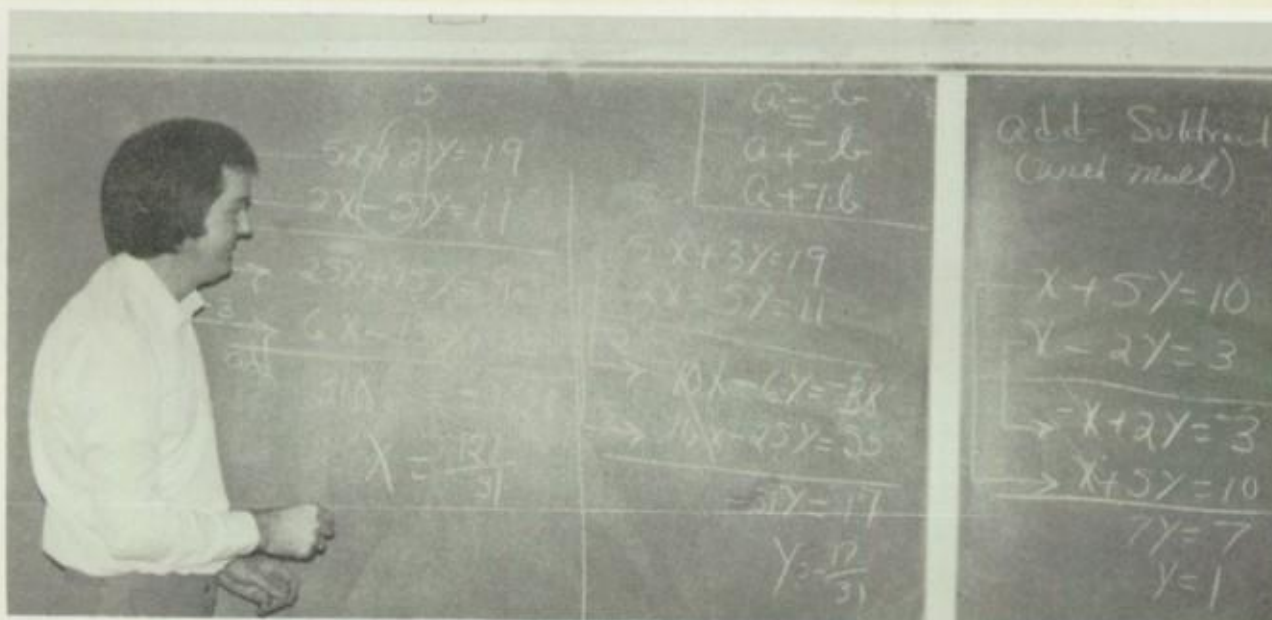 5x+2y=19
2x-5y=11
25x+15y=95
6x-
31x
x = 128/31
a - b
a + -b
a + -1·b
5x+3y=19
2x-5y=11
-10x-6y=-38
10x-25y=55
-31y=17
y=-17/31
add-Subtract
(with mult)
x+5y=10
x-2y=3
-x+2y=-3
x+5y=10
7y=7
y=1